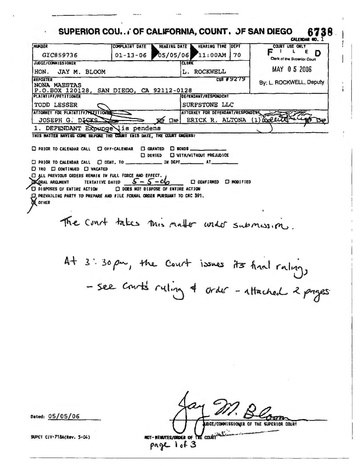 SUPERIOR COURT OF CALIFORNIA, COUNTY OF SAN DIEGO 6738
CALENDAR NO. 1
NUMBER COMPLAINT DATE HEARING DATE HEARING TIME DEPT COURT USE ONLY
GIC859736 01-13-06 05/05/06 11:00AM 70
FILED
Clerk of the Superior Court
JUDGE/COMMISSIONER CLERK
HON. JAY M. BLOOM L. ROCKWELL
MAY 05 2006
REPORTER CSR #9279
By: L. ROCKWELL, Deputy
P.O.BOX 120128, SAN DIEGO, CA 92112-0128
PLAINTIFF/PETITIONER DEFENDANT/RESPONDENT
TODD LESSER SURFSTONE LLC
ATTORNEY FOR PLAINTIFF/PETITIONER ATTORNEY FOR DEFENDANT/RESPONDENT
JOSEPH G. ERICK R. ALTONA (1)
1. DEPENDANT Expunge lis pendens
THIS MATTER HAVING COME BEFORE THE COURT THIS DATE, THE COURT ORDERS:
PRIOR TO CALENDAR CALL OFF-CALENDAR GRANTED
DENIED WITH/WITHOUT PREJUDICE
PRIOR TO CALENDAR CALL CONT. TO IN DEPT. AT
TRO CONTINUED VACATED
ALL PREVIOUS ORDERS REMAIN IN FULL FORCE AND EFFECT.
ORAL ARGUMENT TENTATIVE DATED 5-5-06 CONFIRMED MODIFIED
DISPOSES OF ENTIRE ACTION DOES NOT DISPOSE OF ENTIRE ACTION
PREVAILING PARTY TO PREPARE AND FILE FORMAL ORDER PURSUANT TO CRC 391.
OTHER
The Court takes this matter under submission.
At 3:30 pm, the Court issues its final ruling,
- see Court's ruling & order - attached 2 pages
Dated: 05/05/06
Jay M. Bloom
JUDGE/COMMISSIONER OF THE SUPERIOR COURT
SUPCT CIV-718(Rev. 3-04) MOT-MINUTES/ORDER OF THE COURT
page 1 of 3